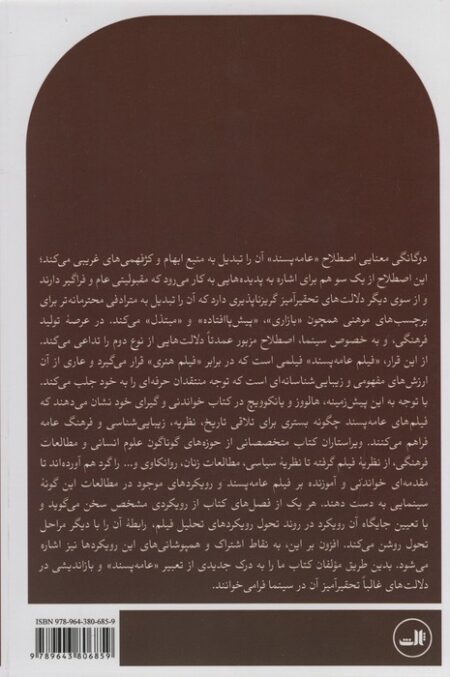 دوگانگی معنایی اصطلاح «عامه‌پسند» آن را تبدیل به منبع ابهام و کژفهمی‌های غریبی می‌کند؛
این اصطلاح از یک سو هم برای اشاره به پدیده‌هایی به کار می‌رود که مقبولیتی عام و فراگیر دارند
و از سوی دیگر دلالت‌های تحقیرآمیز گریزناپذیری دارد که آن را تبدیل به مترادفی محترمانه‌تر برای
برچسب‌های موهنی همچون «بازاری»، «پیش‌پاافتاده» و «مبتذل» می‌کند. در عرصهٔ تولید
فرهنگی، و به خصوص سینما، اصطلاح مزبور عمدتاً دلالت‌هایی از نوع دوم را تداعی می‌کند.
از این قرار، «فیلم عامه‌پسند» فیلمی است که در برابر «فیلم هنری» قرار می‌گیرد و عاری از آن
ارزش‌های مفهومی و زیبایی‌شناسانه‌ای است که توجه منتقدان حرفه‌ای را به خود جلب می‌کند.
با توجه به این پیش‌زمینه، هالووز و یانکوویچ در کتاب خواندنی و گیرای خود نشان می‌دهند که
فیلم‌های عامه‌پسند چگونه بستری برای تلاقی تاریخ، نظریه، زیبایی‌شناسی و فرهنگ عامه
فراهم می‌کنند. ویراستاران کتاب متخصصانی از حوزه‌های گوناگون علوم انسانی و مطالعات
فرهنگی، از نظریهٔ فیلم گرفته تا نظریهٔ سیاسی، مطالعات زنان، روانکاوی و... را گرد هم آورده‌اند تا
مقدمه‌ای خواندنی و آموزنده بر فیلم عامه‌پسند و رویکردهای موجود در مطالعات این گونهٔ
سینمایی به دست دهند. هر یک از فصل‌های کتاب از رویکردی مشخص سخن می‌گوید و
با تعیین جایگاه آن رویکرد در روند تحول رویکردهای تحلیل فیلم، رابطهٔ آن را با دیگر مراحل
تحول روشن می‌کند. افزون بر این، به نقاط اشتراک و همپوشانی‌های این رویکردها نیز اشاره
می‌شود. بدین طریق مؤلفان کتاب ما را به درک جدیدی از تعبیر «عامه‌پسند» و بازاندیشی در
دلالت‌های غالباً تحقیرآمیز آن در سینما فرامی‌خوانند.
ISBN 978-964-380-685-9
9 789643 806859
ثالث